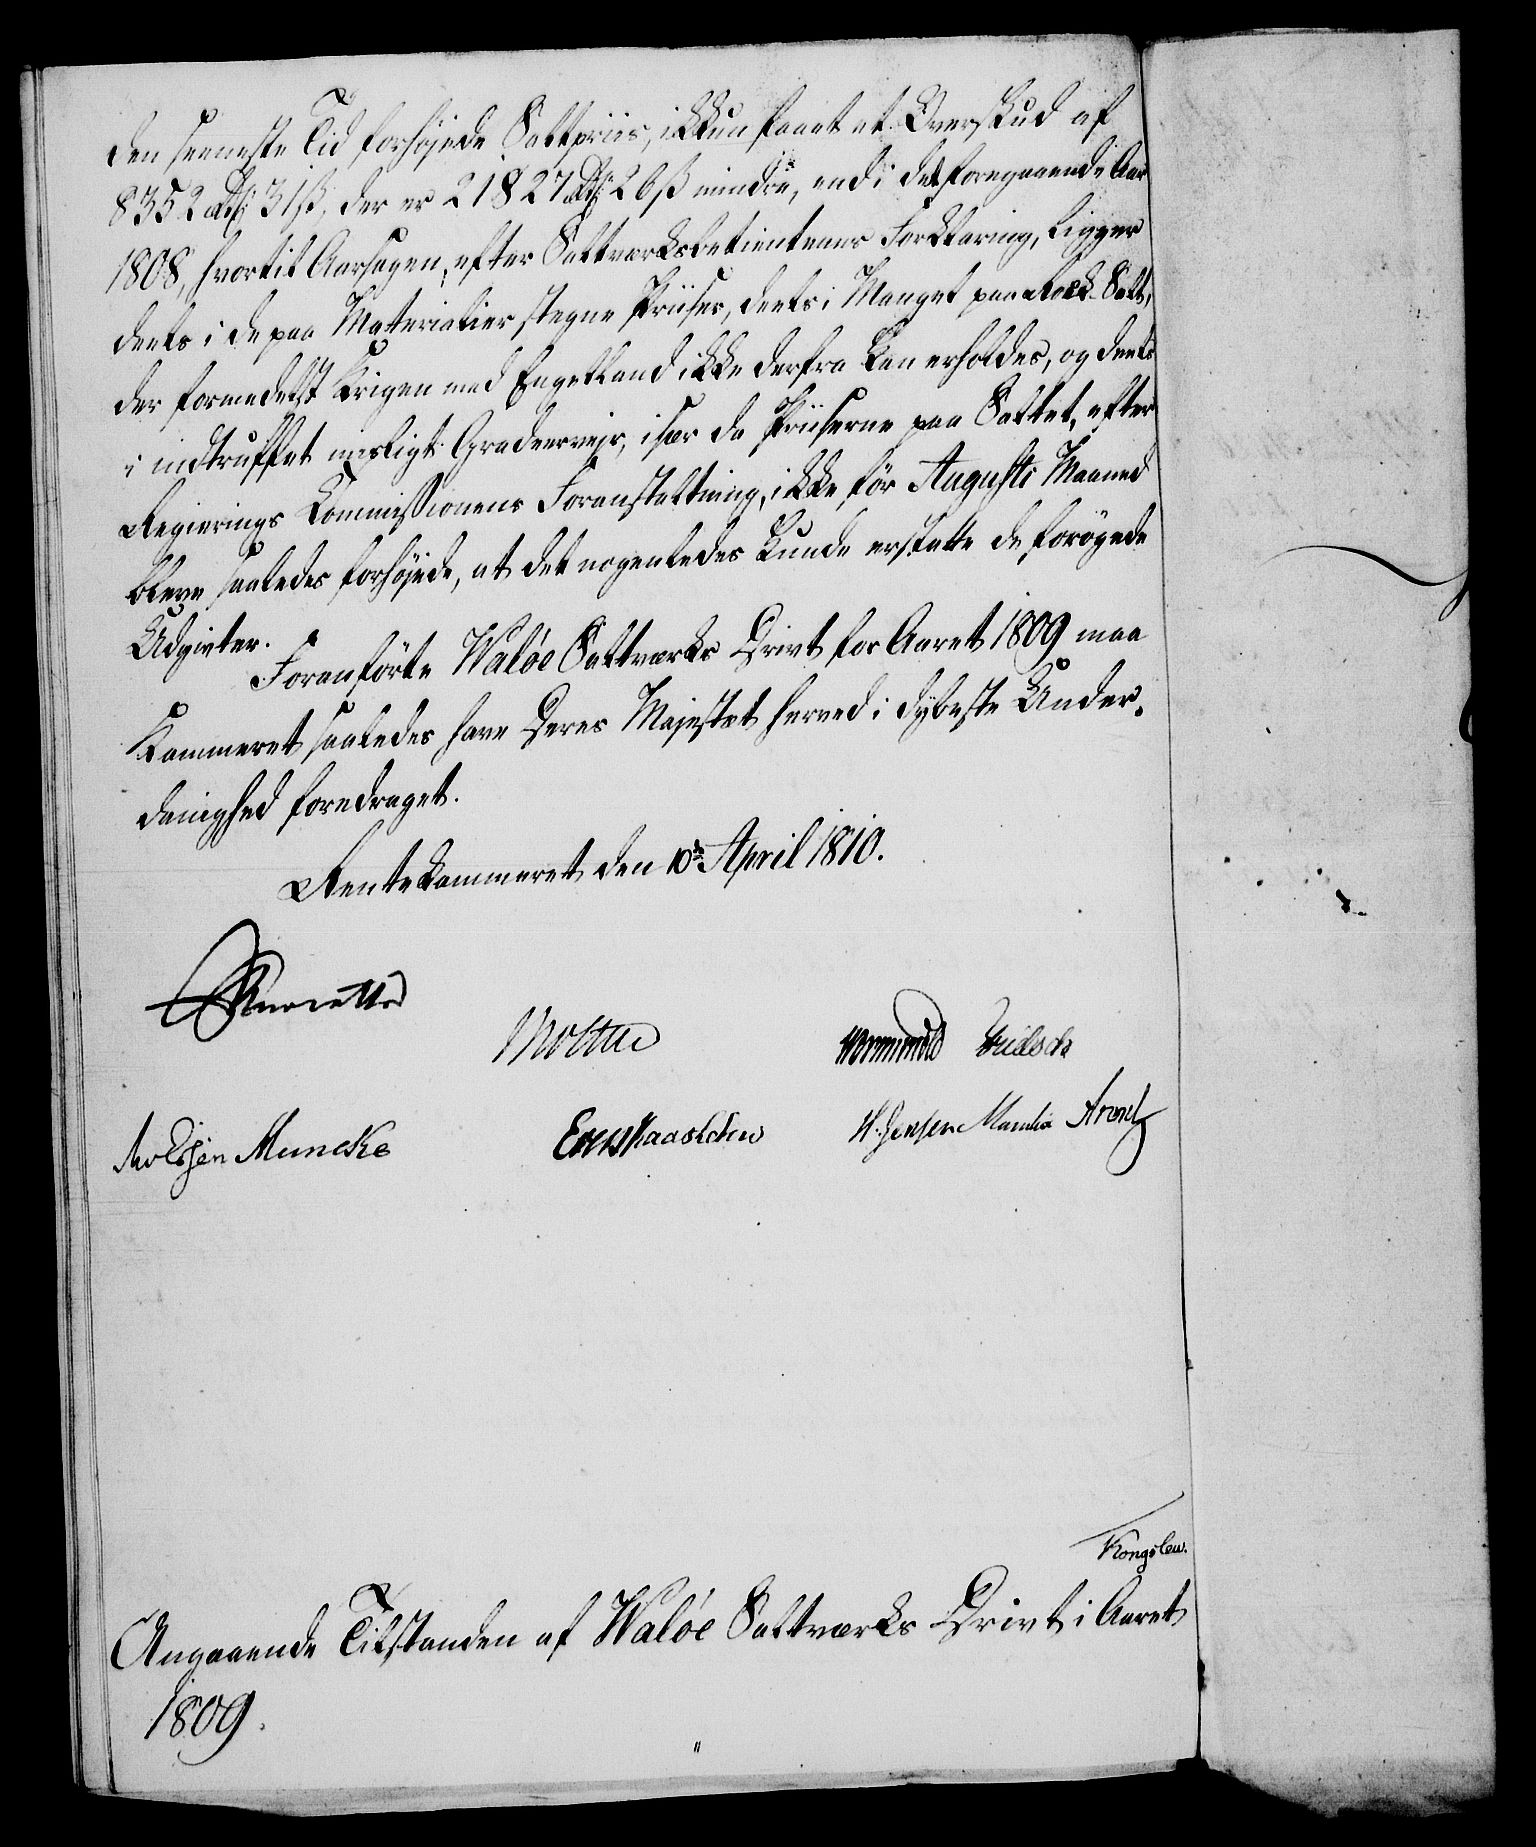 den seeneste Tid forhöjede Saltpriis, ikkun havt et Overskud af
8352 Rdr 31 ß, der er 21827 Rdr 26 ß mindre, end i det foregaaende Aar
1808, hvortil Aarsagen, efter Saltværksbetientenes Forklaring, ligger
deels i de paa Materialier stegne Priiser, deels i Mangel paa Rock-Salt,
der formedelst Krigen med Engelland ikke derfra kan erholdes, og deels
i indtruffet misligt Graderveir, især da Priiserne paa Saltet, efter
Regierings Commissionens Foranstaltning, ikke för Augusti Maaned
bleve saaledes forhöjede, at det nogenledes kunde erstatte de forögede
Udgivter.
Foranförte Walöe Saltværks Drivt for Aaret 1809 maa
Kammeret saaledes have Deres Majestæt herved i dybeste Under-
danighed foredraget.
Rentekammeret den 10de April 1810.
Moltke
Wormskiold
Muncke
H. Jensen Arentz
Kongslew.
Angaaende Tilstanden af Walöe Saltværks Drivt i Aaret
1809.